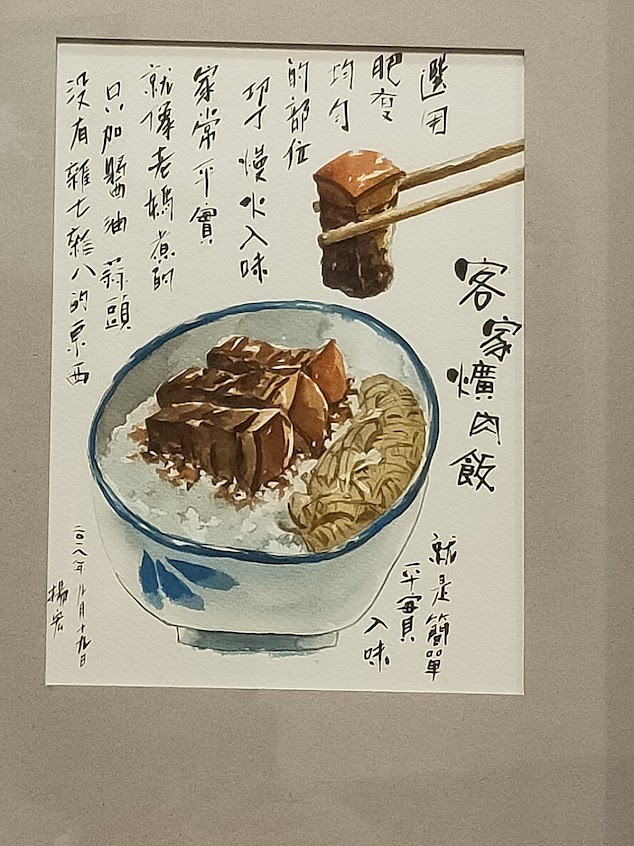 客家爌肉飯
選用
肥
均勻
的部位
慢火入味
家常平實
就像老媽煮的
只加醬油蒜頭
沒有雜七雜八的東西
就是簡單
平實
入味
二〇一八年 月十九日
楊宏